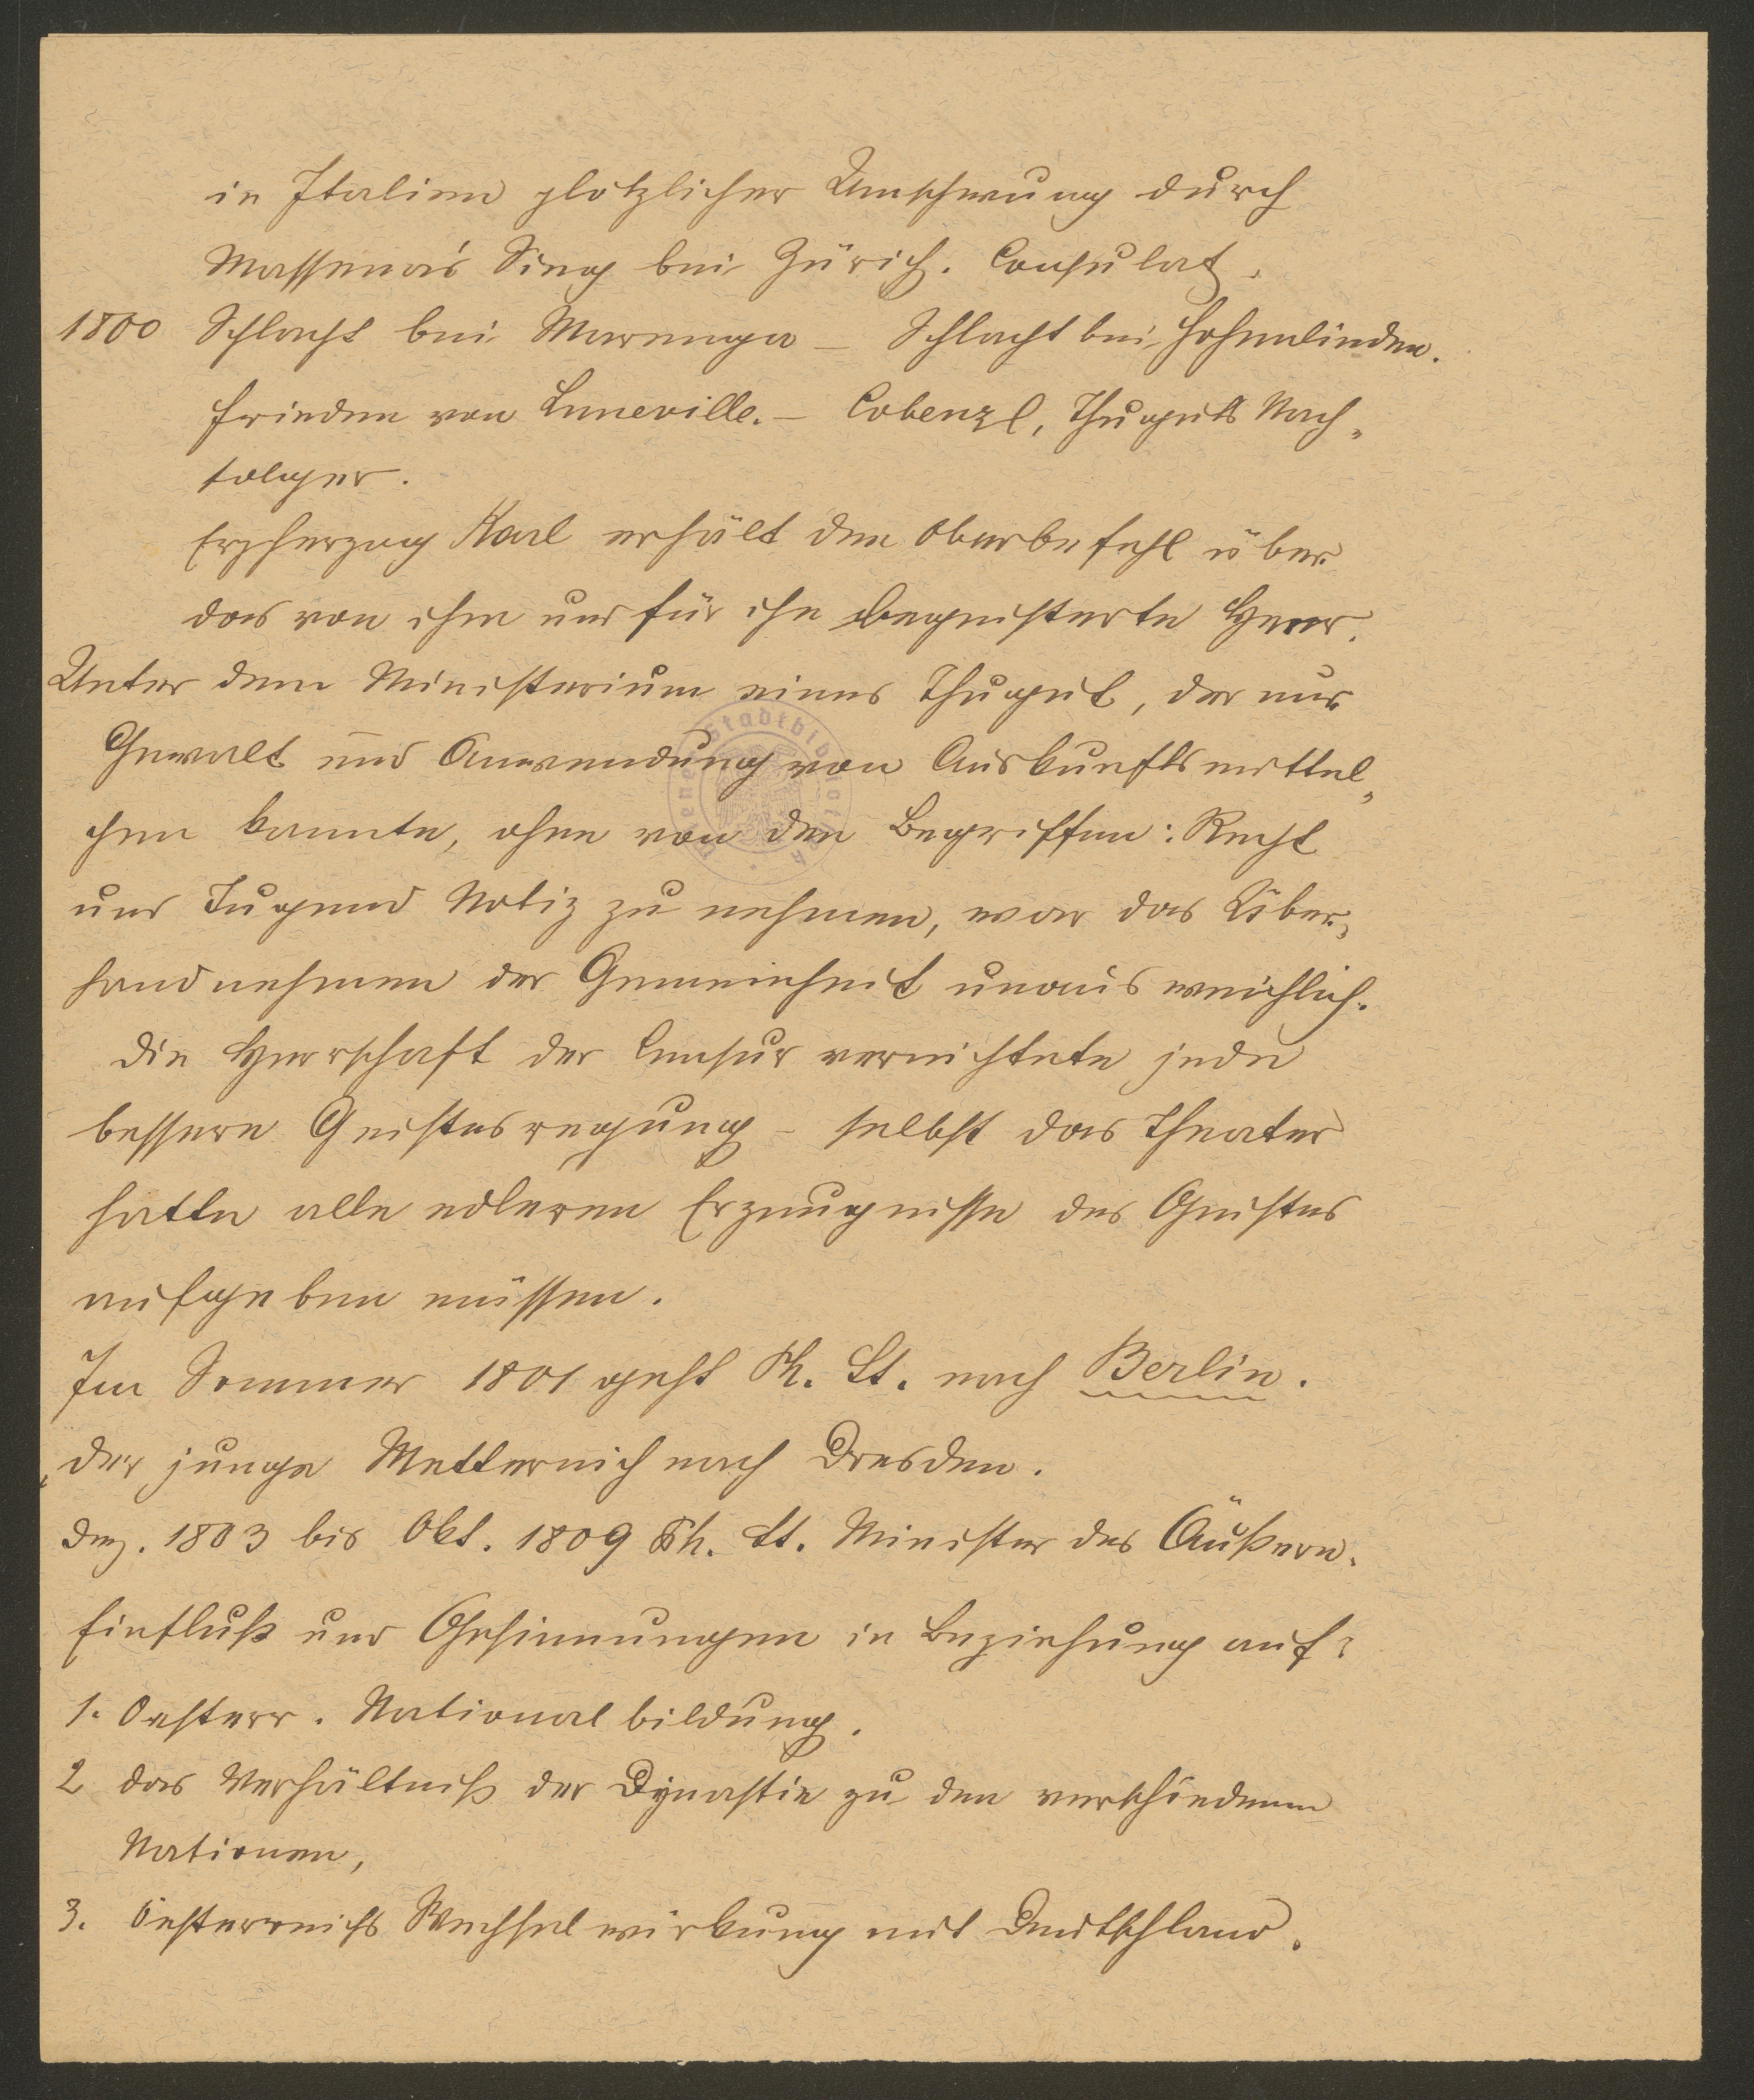 in Italien plötzlicher Umschwung durch
Massena's Sieg bei Zürich. Consulat.
1800 Schlacht bei Marengo – Schlacht bei Hohenlinden.
Frieden von Luneville. – Cobenzl, Thuguts Nach-
folger.
Erzherzog Karl erhält den Oberbefehl über
das von ihm und für ihn begeisterte Heer.
Unter dem Ministerium eines Thugut, der nur
Gewalt und Anwendung von Auskunftsmittel-
chen kannte, ohne von den Begriffen: Recht
und Tugend Notiz zu nehmen, war das Über-
handnehmen der Gemeinheit unausweichlich.
Die Herrschaft der Censur vernichtete jede
bessere Geistesregung – selbst das Theater
hatte alle edleren Erzeugnisse des Geistes
aufgeben müssen.
Im Sommer 1801 geht Ph. St. nach Berlin.
der junge Metternich nach Dresden.
Dez. 1803 bis Okt. 1809 Ph. St. Minister des Äußern.
Einfluß und Gesinnungen in Beziehung auf:
1. Oesterr. Nationalbildung.
2 das Verhältniß der Dynastie zu den verschiedenen
Nationen,
3. Oesterreichs Wechselwirkung mit Deutschland.
Wiener Stadtbibliothek